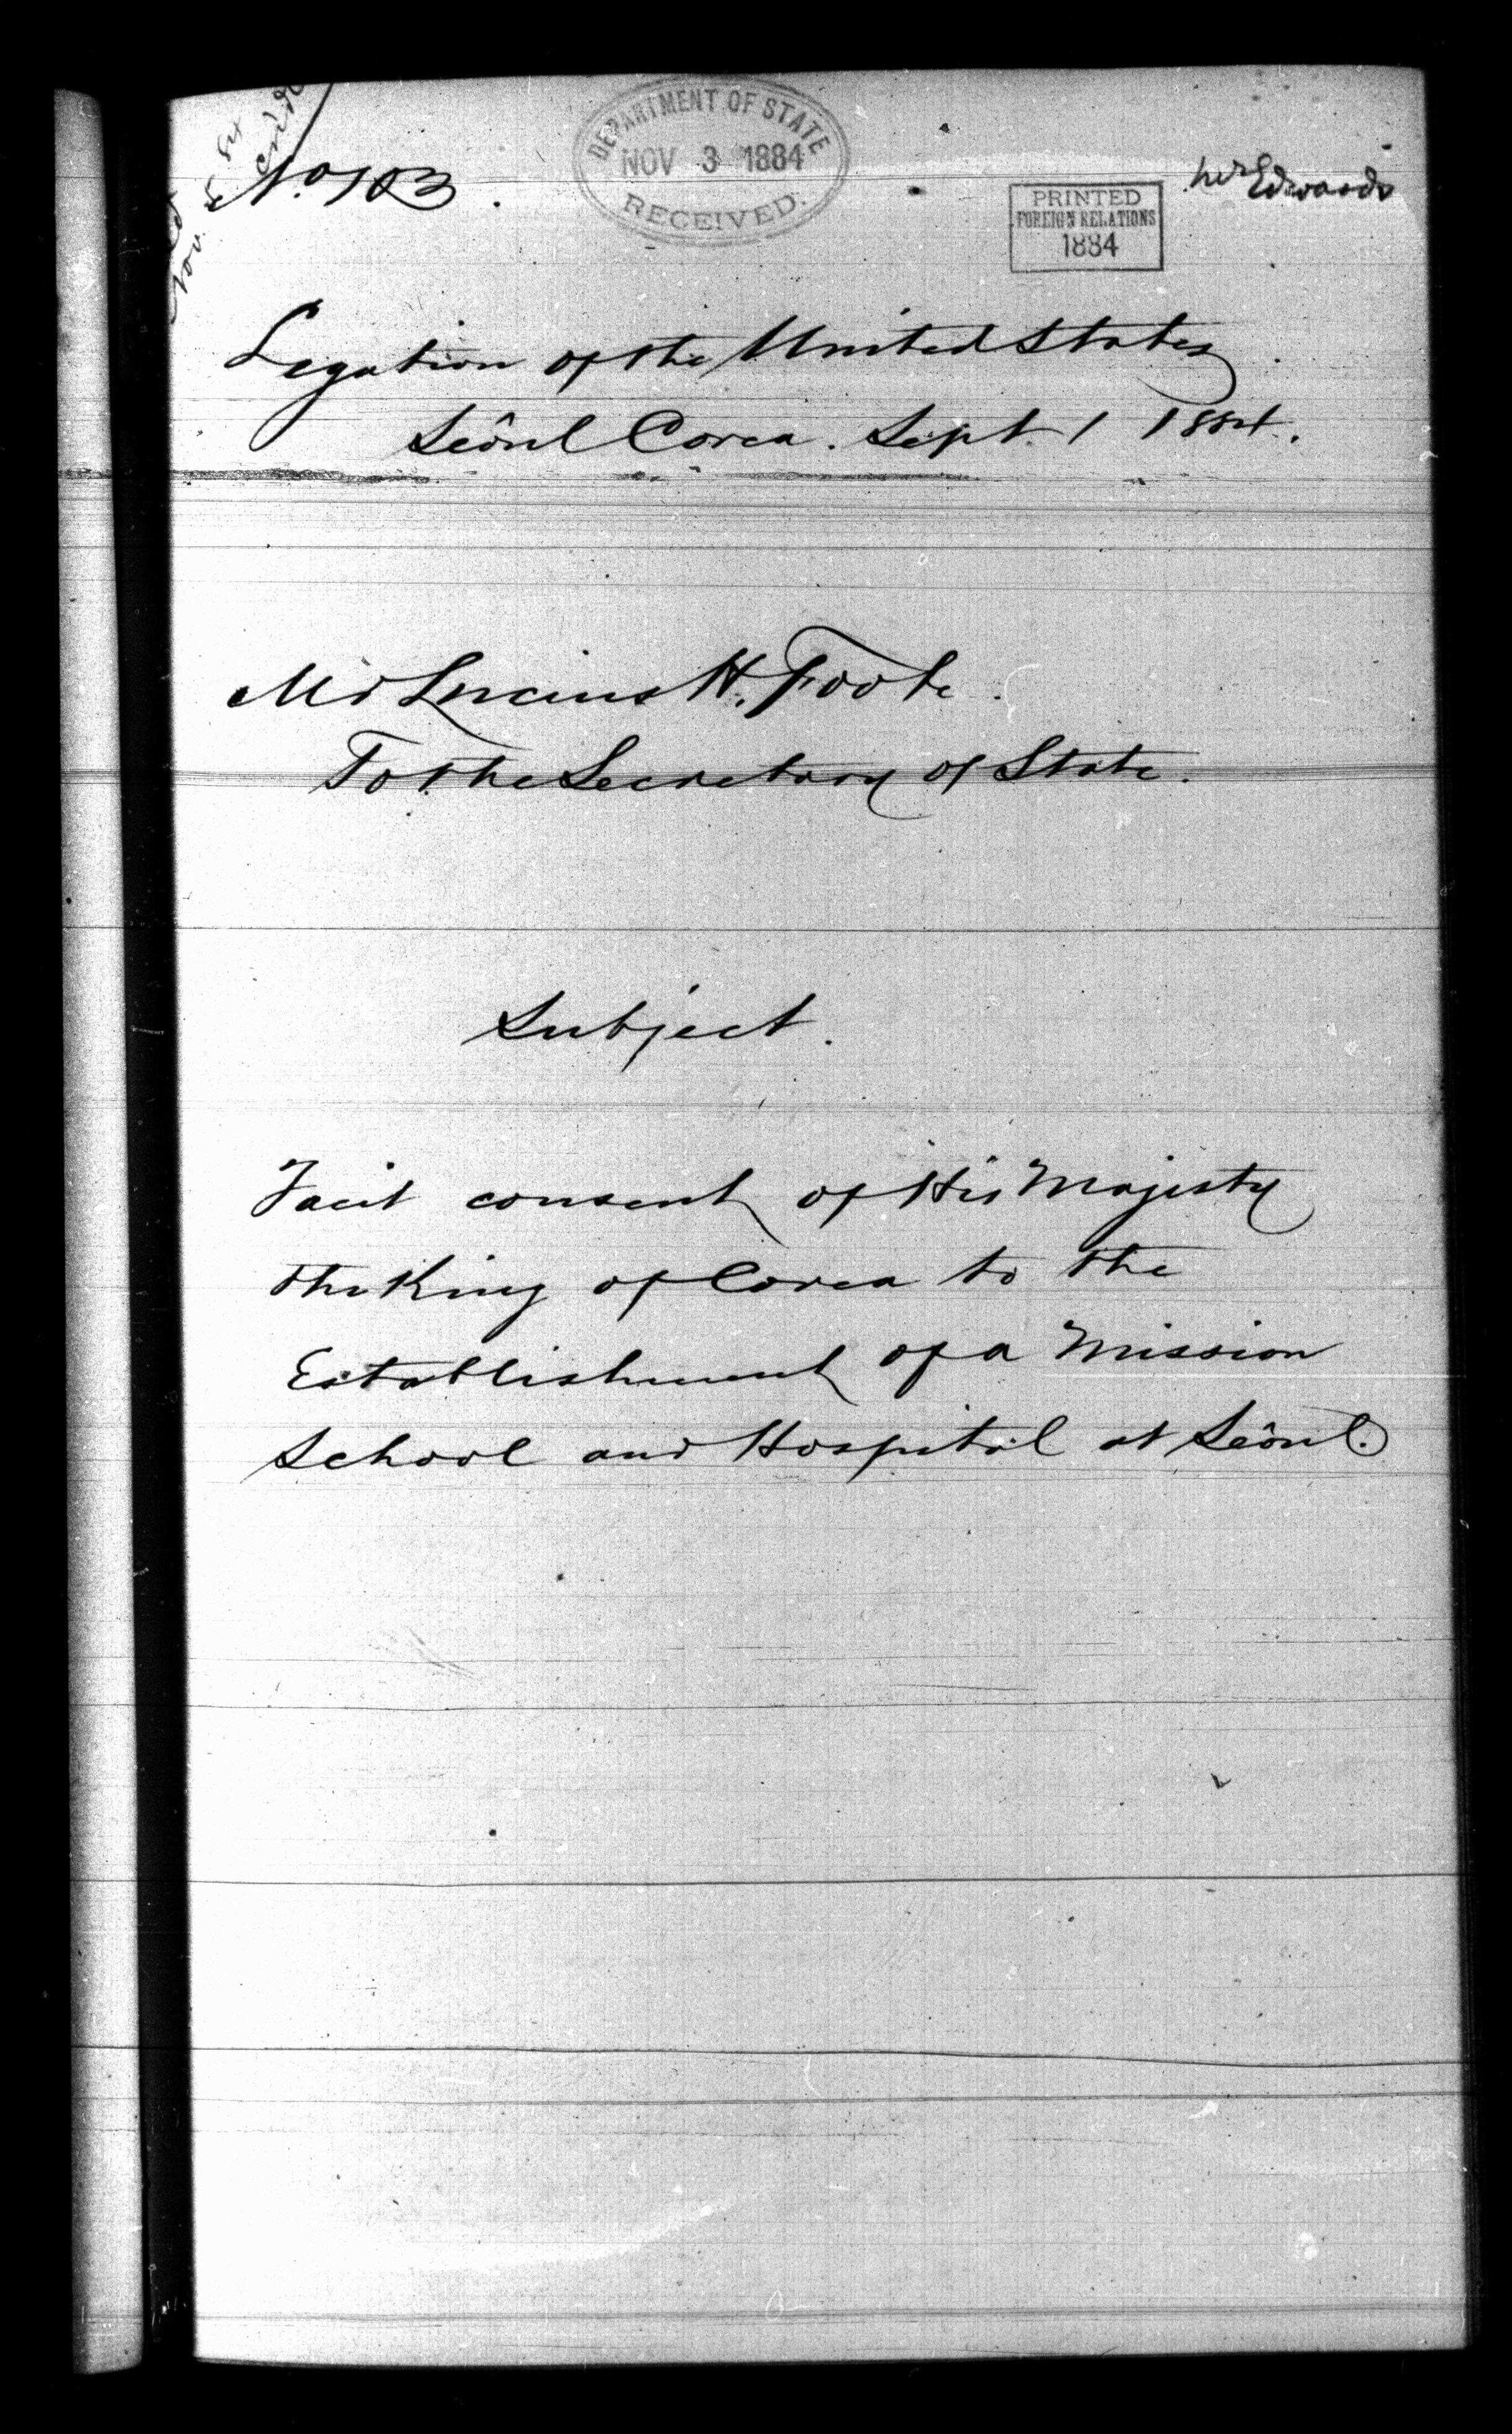 No 103.
DEPARTMENT OF STATE
NOV 3 1884
RECEIVED.
PRINTED
FOREIGN RELATIONS
1884
Mr Edwards
Legation of the United States.
Seôul Corea. Sept. 1 1884.
Mr Lucius H. Foote.
To the Secretary of State.
Subject.
Tacit consent of His Majesty
the King of Corea to the
Establishment of a Mission
School and Hospital at Seôul.